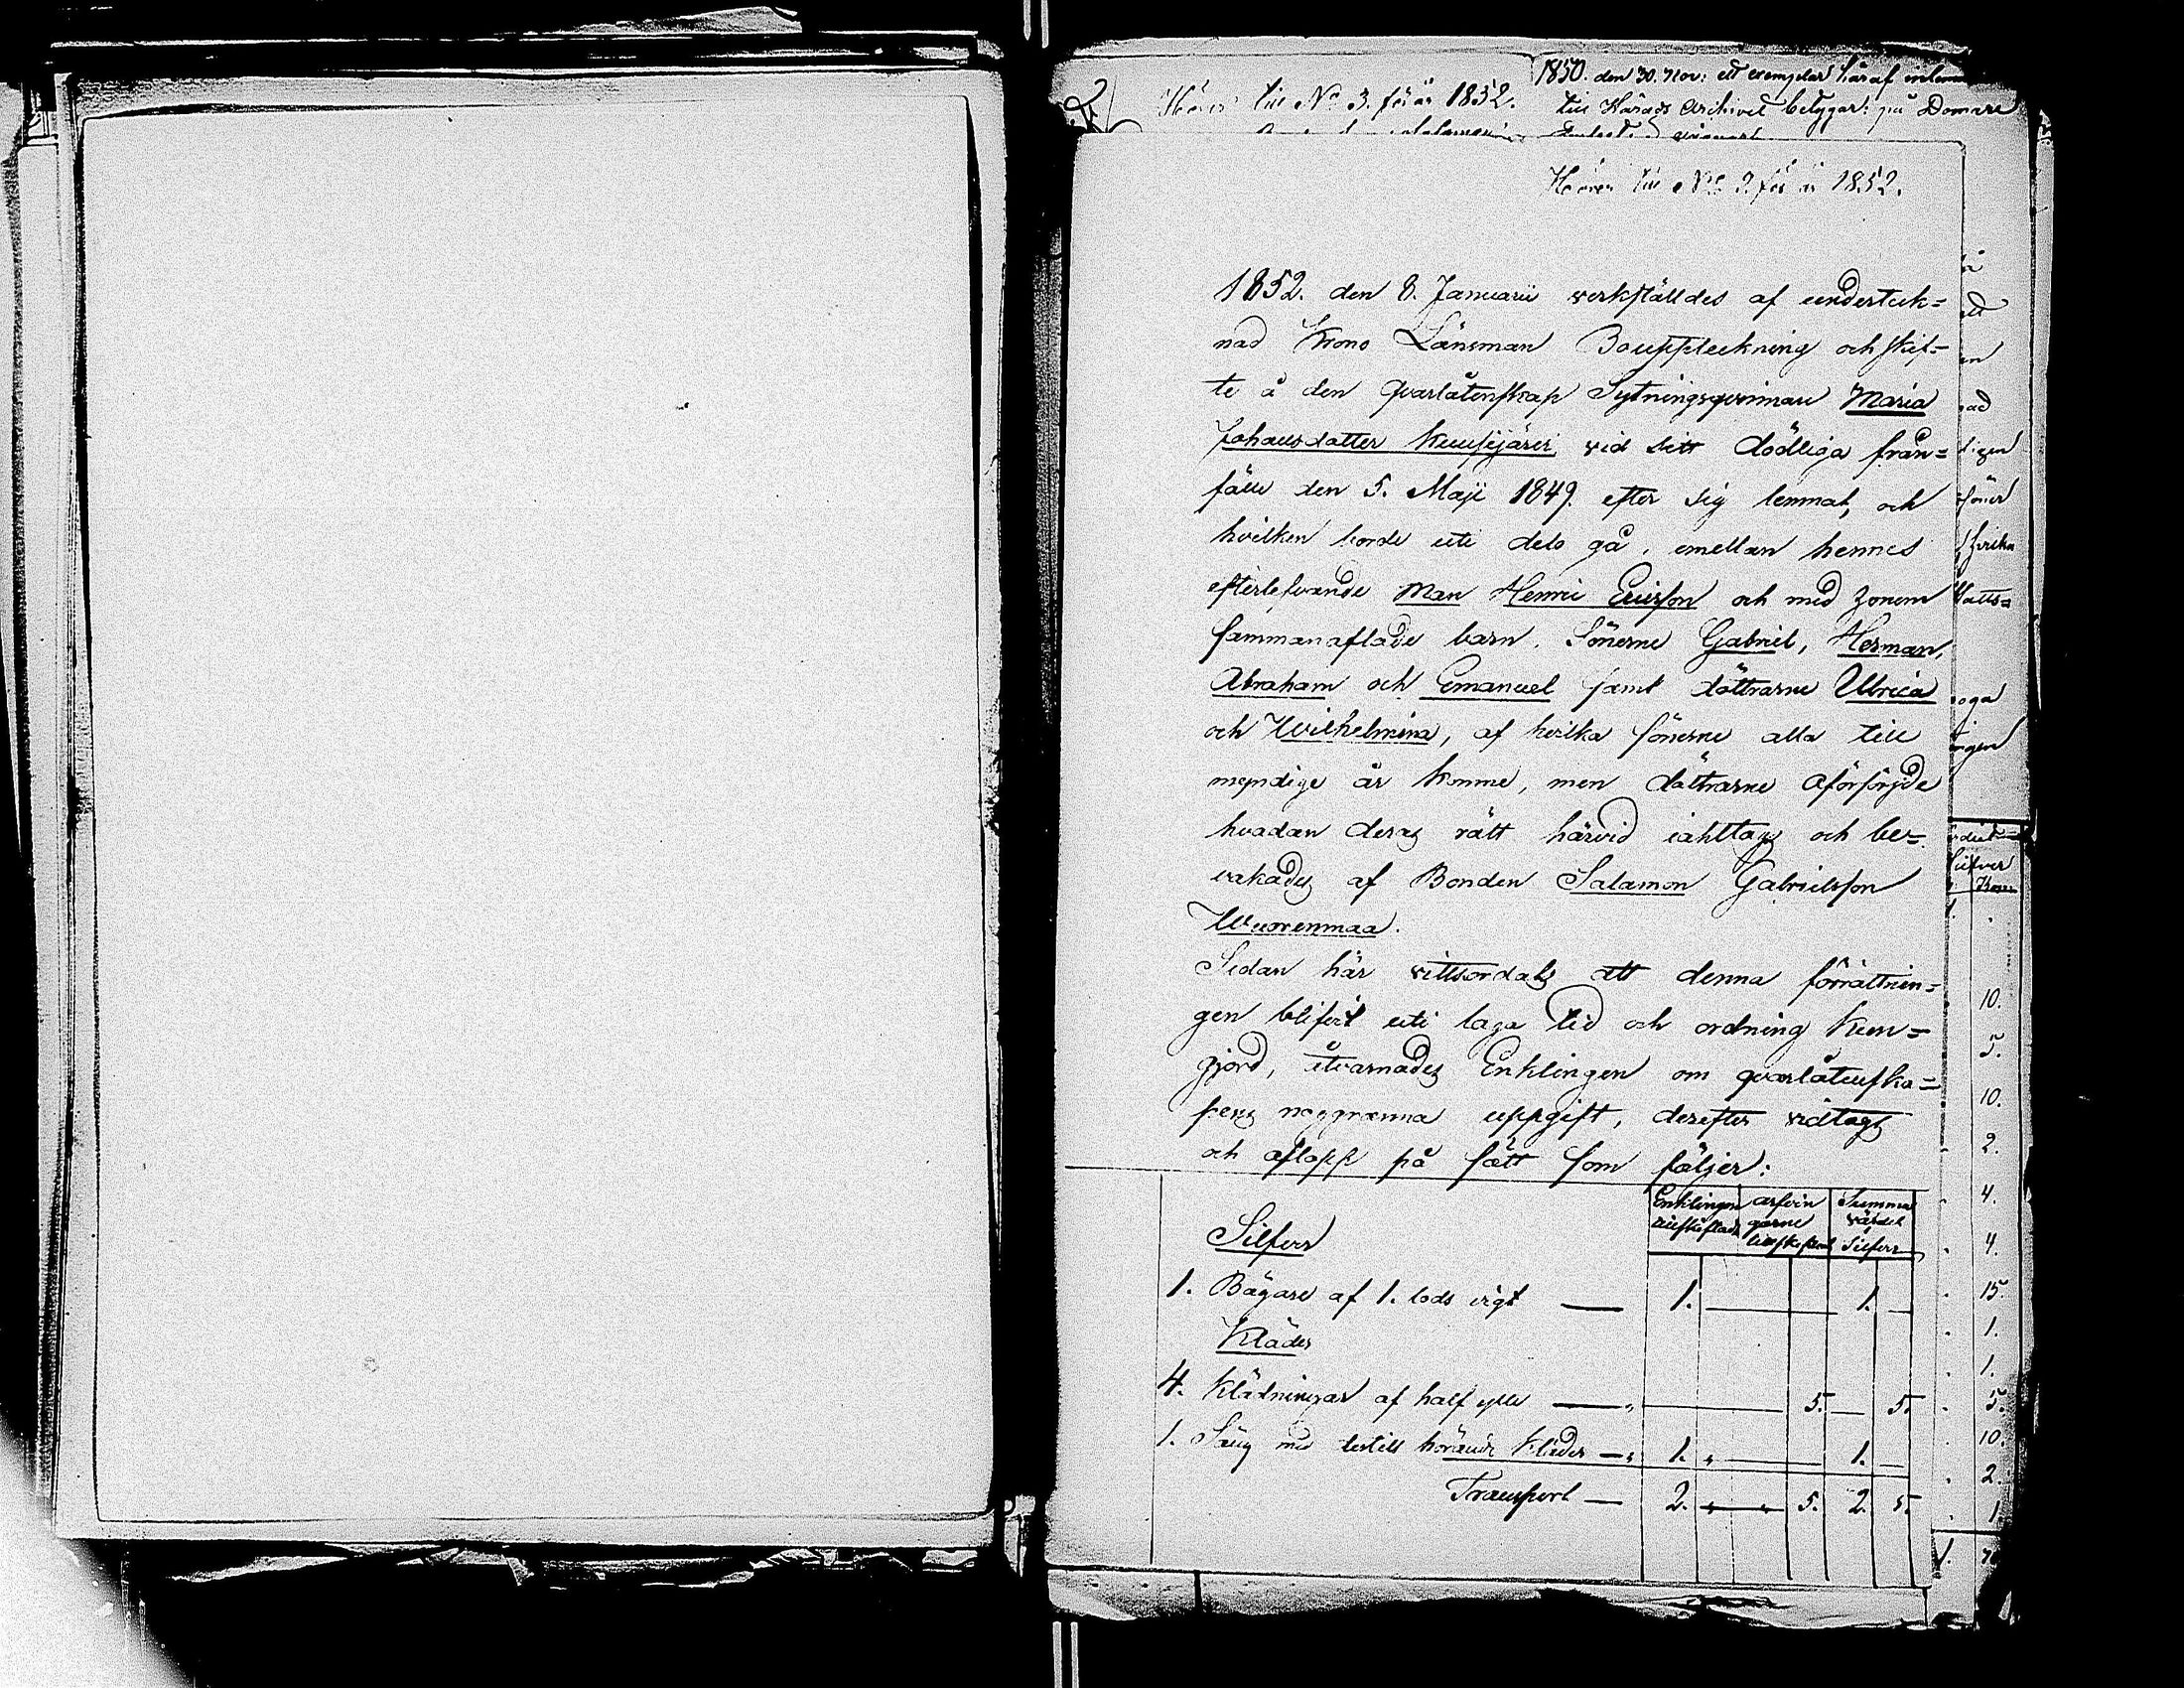 1850. den 30. Nov: ett exemplar häraf
Hörer till No 3. för år 1852.
till Härads Archivet betygar: på Domare
Hörer till No 2. för år 1852.
1852. den 8. Januarii verkställdes af underteck=
nad Krono Länsman Bouppteckning och skif=
te å den qvarlåtenskap Sytningsqvinnan Maria
Johansdotter Kuusijärvi vid sitt dödliga från=
fälle den 5. Maji 1849. efter sig lemnat, och
hvilken borde uti delo gå, emellan hennes
efterlefvande Man Henric Ericsson och med honom
sammanaflade barn. Sönerne Gabriel, Herman,
Abraham och Emanuel samt döttrarne Ulrica
och Wilhelmina, af hvilka sönerne alla till
myndige år komne, men döttrarne oförsörjde
hvadan deras rätt härvid iakttogs och be=
vakades af Bonden Salamon Gabrielsson
Wuorenmaa.
Sedan här vittsordats att denna förrättnin=
gen blifvit uti laga tid och ordning kun=
gjord, åtvarnades Enklingen om qvarlåtenska=
pens noggranna uppgift, derefter vidtogs
och aflopp på sätt som följer:
Enklingens arfvin Summa
garne värdet
Silfver
Silfver
1. Bägare af 1. lods vigt — 1. — 1. —
Kläder
4. Klädningar af half ylle — 5. — 5.
1. Säng med dertill hörande kläder — 1. — 1. —
Transport — 2. — 5. 2. 5.
10.
5.
10.
2.
4.
4.
15.
1.
1.
5.
10.
2.
1